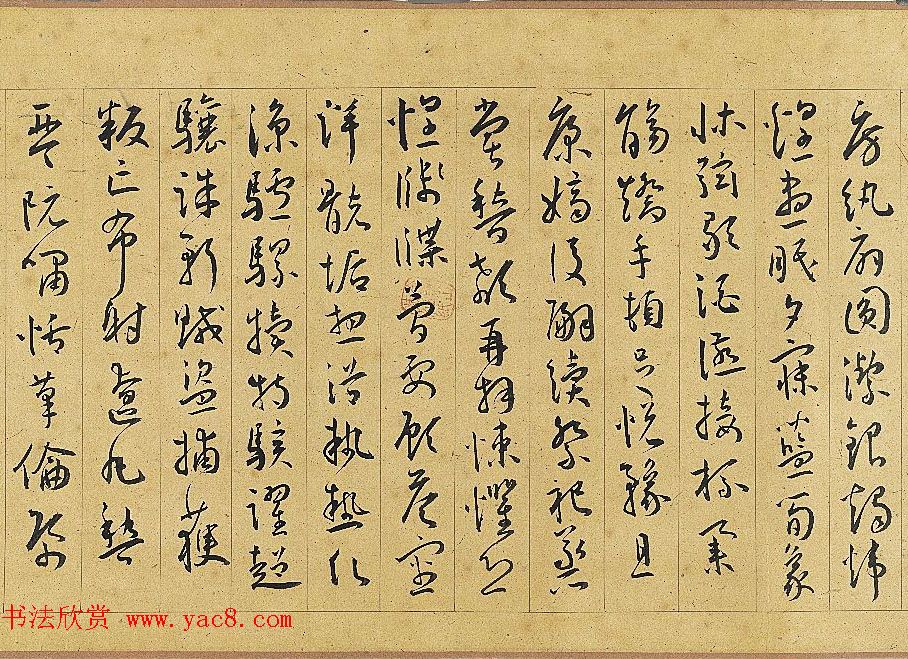 房紈扇圓潔銀燭煒
煌晝眠夕寐藍筍象
床弦歌酒讌接杯舉
觴矯手頓足悅豫且
康嫡後嗣續祭祀蒸
嘗稽顙再拜悚懼恐
惶牋牒簡要顧答審
詳骸垢想浴執熱願
涼驢騾犢特駭躍超
驤誅斬賊盜捕獲
叛亡布射遼丸嵇
琴阮嘯恬筆倫紙
书法欣赏 www.yac8.com